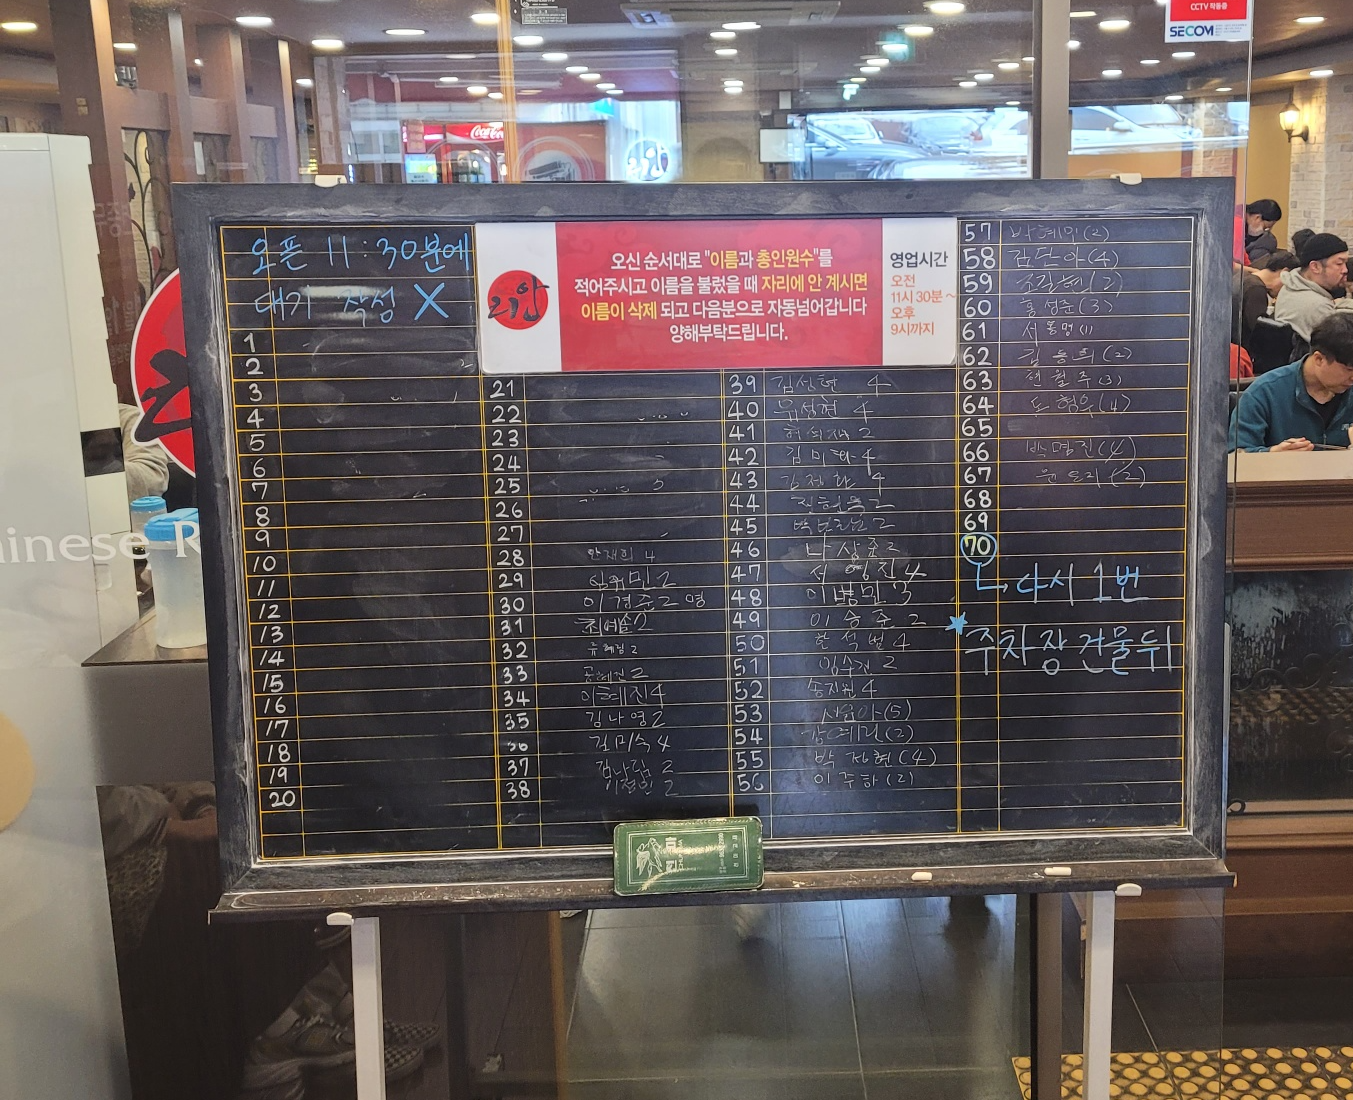 CCTV 작동중
SECOM
오픈 11:30분에
대기 작성 X
리안
오신 순서대로 "이름과 총인원수"를
적어주시고 이름을 불렀을 때 자리에 안 계시면
이름이 삭제 되고 다음분으로 자동넘어갑니다
양해부탁드립니다.
영업시간
오전
11시 30분 ~
오후
9시까지
1
2
3
4
5
6
7
8
9
10
11
12
13
14
15
16
17
18
19
20
21
22
23
24
25
26
27
28 안재희 4
29 2
30 이경준 2명
31 최예솔 2
32 2
33 2
34 이혜진 4
35 김나영 2
36 김미숙 4
37 2
38 2
39 김상현 4
40 4
41 2
42 김미화 4
43 4
44 2
45 2
46 나상준 2
47 서영진 4
48 이병민 3
49 이승준 2
50 한석범 4
51 2
52 송지원 4
53 (5)
54 (2)
55 박지현 (4)
56 이주하 (2)
57 (2)
58 김단아 (4)
59 (2)
60 홍성준 (3)
61 (1)
62 김동희 (2)
63 현월주 (3)
64 (4)
65
66 박명진 (4)
67 (2)
68
69
70
↳ 다시 1번
★ 주차장 건물뒤